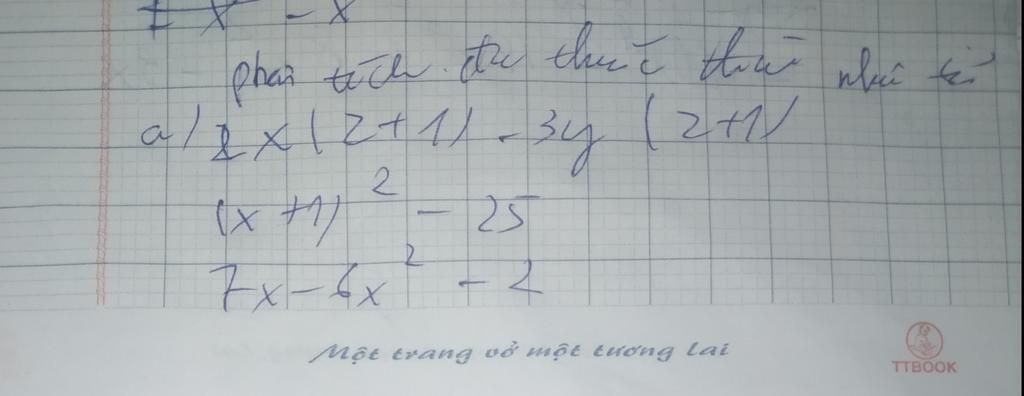 x - x
phân tích đa thức thành nhân tử
a) 2x(z+1) - 3y(z+1)
(x+1)² - 25
7x - 6x² - 2
Một trang vở một tương lai
TTBOOK